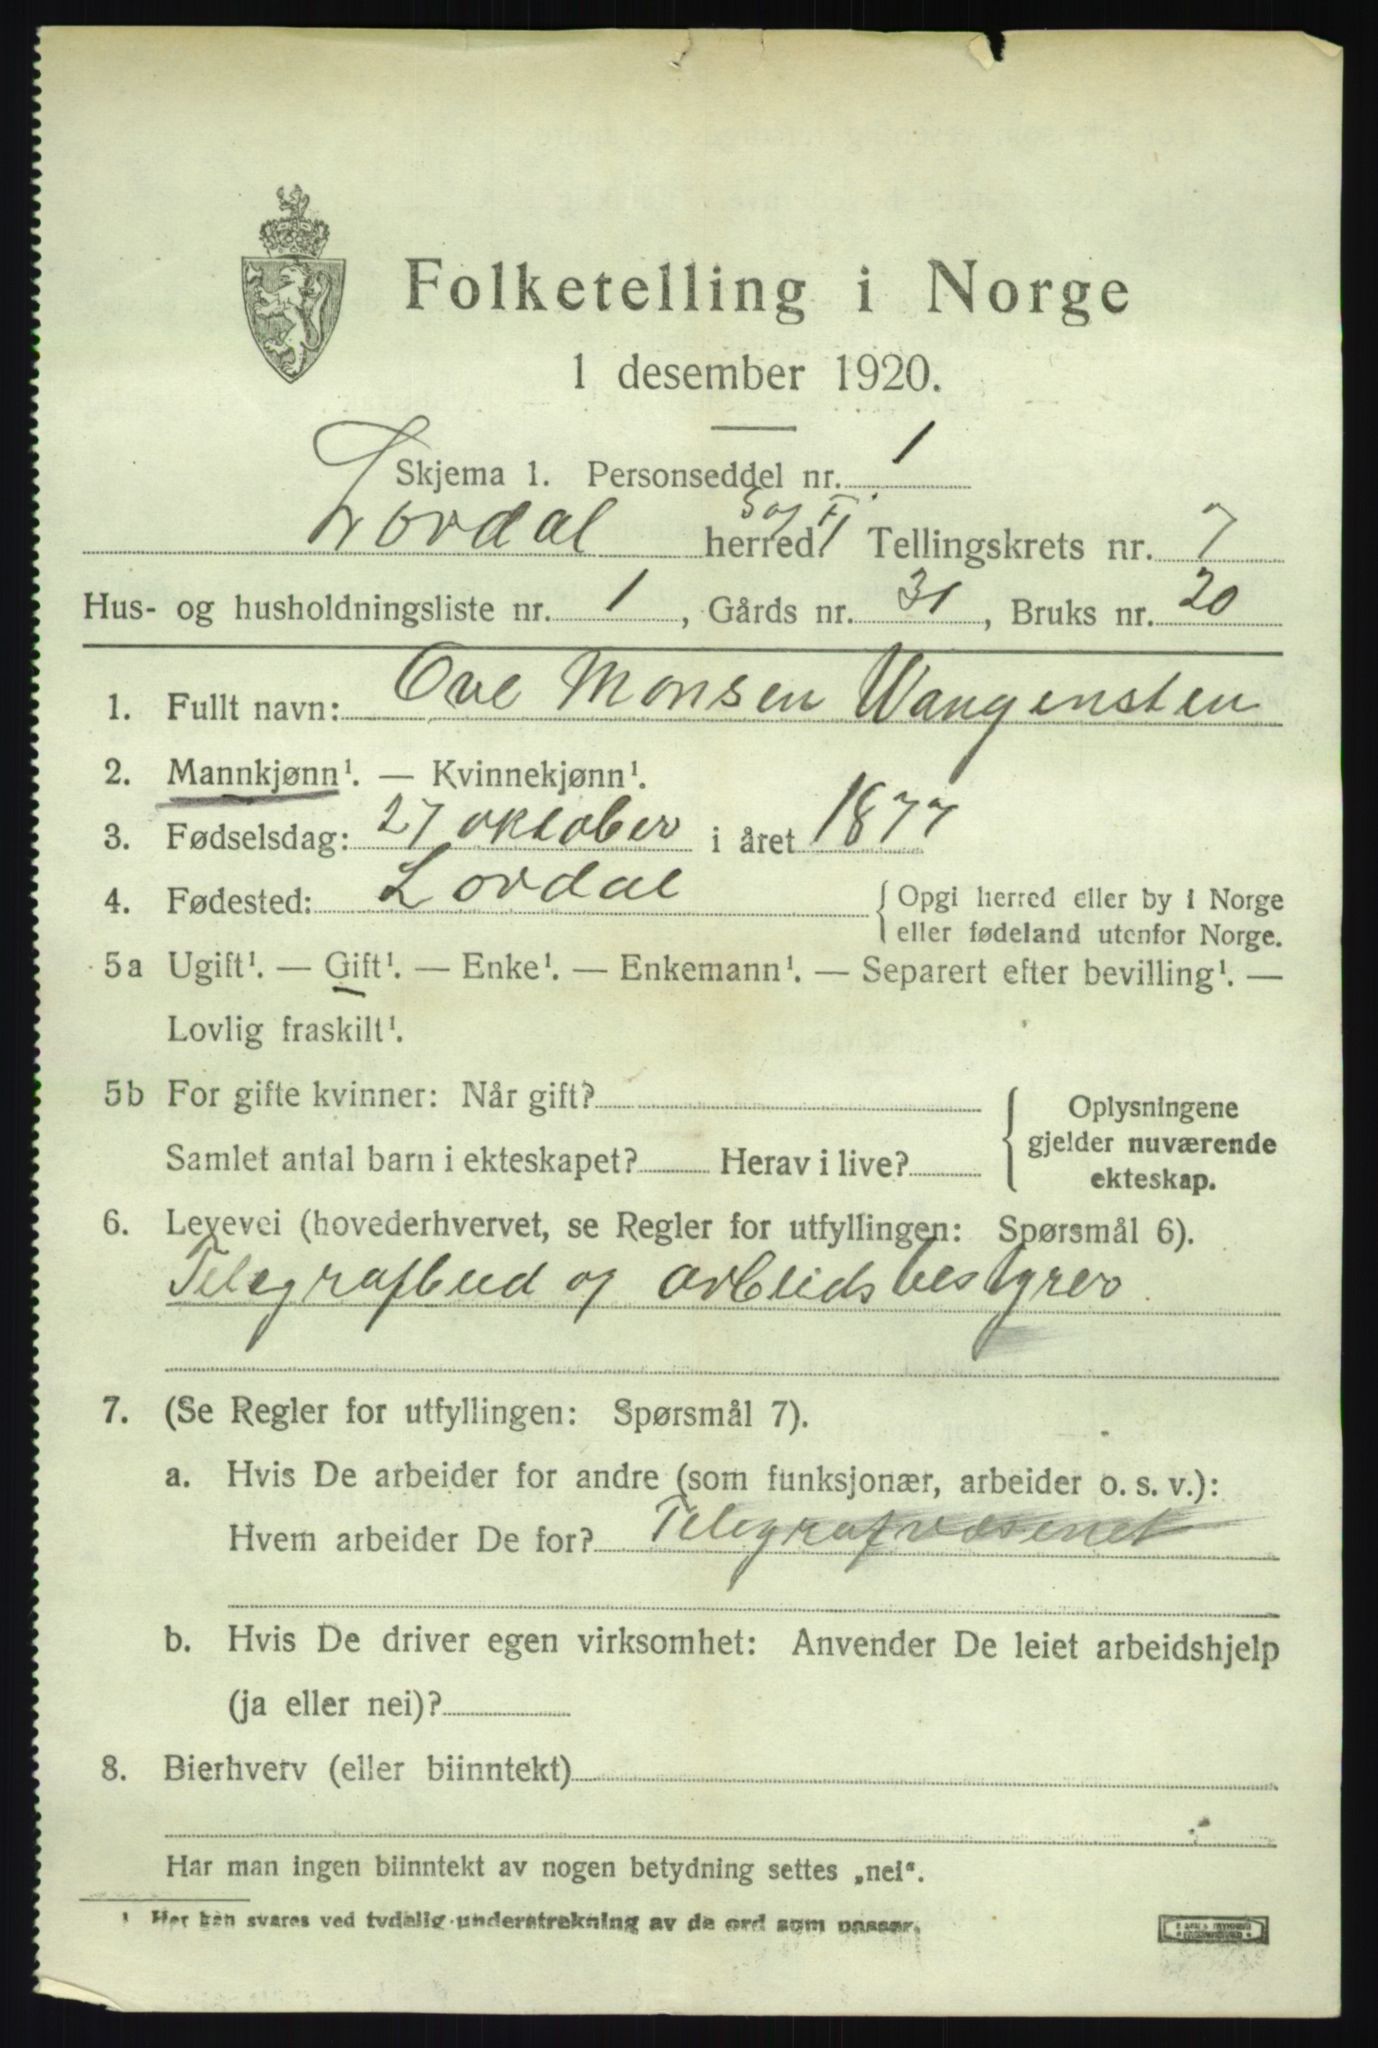 Folketelling i Norge
1 desember 1920.
Skjema 1. Personseddel nr. 1
Lordal herred Tellingskrets nr. 7
Hus- og husholdningsliste nr. 1, Gårds nr. 31, Bruks nr. 20
1. Fullt navn: Ove Monsen Wangensten
2. Mannkjønn¹. — Kvinnekjønn¹.
3. Fødselsdag: 27 oktober i året 1877
4. Fødested: Lordal { Opgi herred eller by i Norge
eller fødeland utenfor Norge.
5a Ugift¹. — Gift¹. — Enke¹. — Enkemann¹. — Separert efter bevilling¹. —
Lovlig fraskilt¹.
5b For gifte kvinner: Når gift? { Oplysningene
gjelder nuværende
Samlet antal barn i ekteskapet? Herav i live? ekteskap.
6. Levevei (hovederhvervet, se Regler for utfyllingen: Spørsmål 6).
Telegrafbud og arbeidsbestyrer
7. (Se Regler for utfyllingen: Spørsmål 7).
a. Hvis De arbeider for andre (som funksjonær, arbeider o. s. v.):
Hvem arbeider De for? Telegrafvæsenet
b. Hvis De driver egen virksomhet: Anvender De leiet arbeidshjelp
(ja eller nei)?
8. Bierhverv (eller biinntekt)
Har man ingen biinntekt av nogen betydning settes „nei“.
¹ Her kan svares ved tydelig understrekning av de ord som passer.